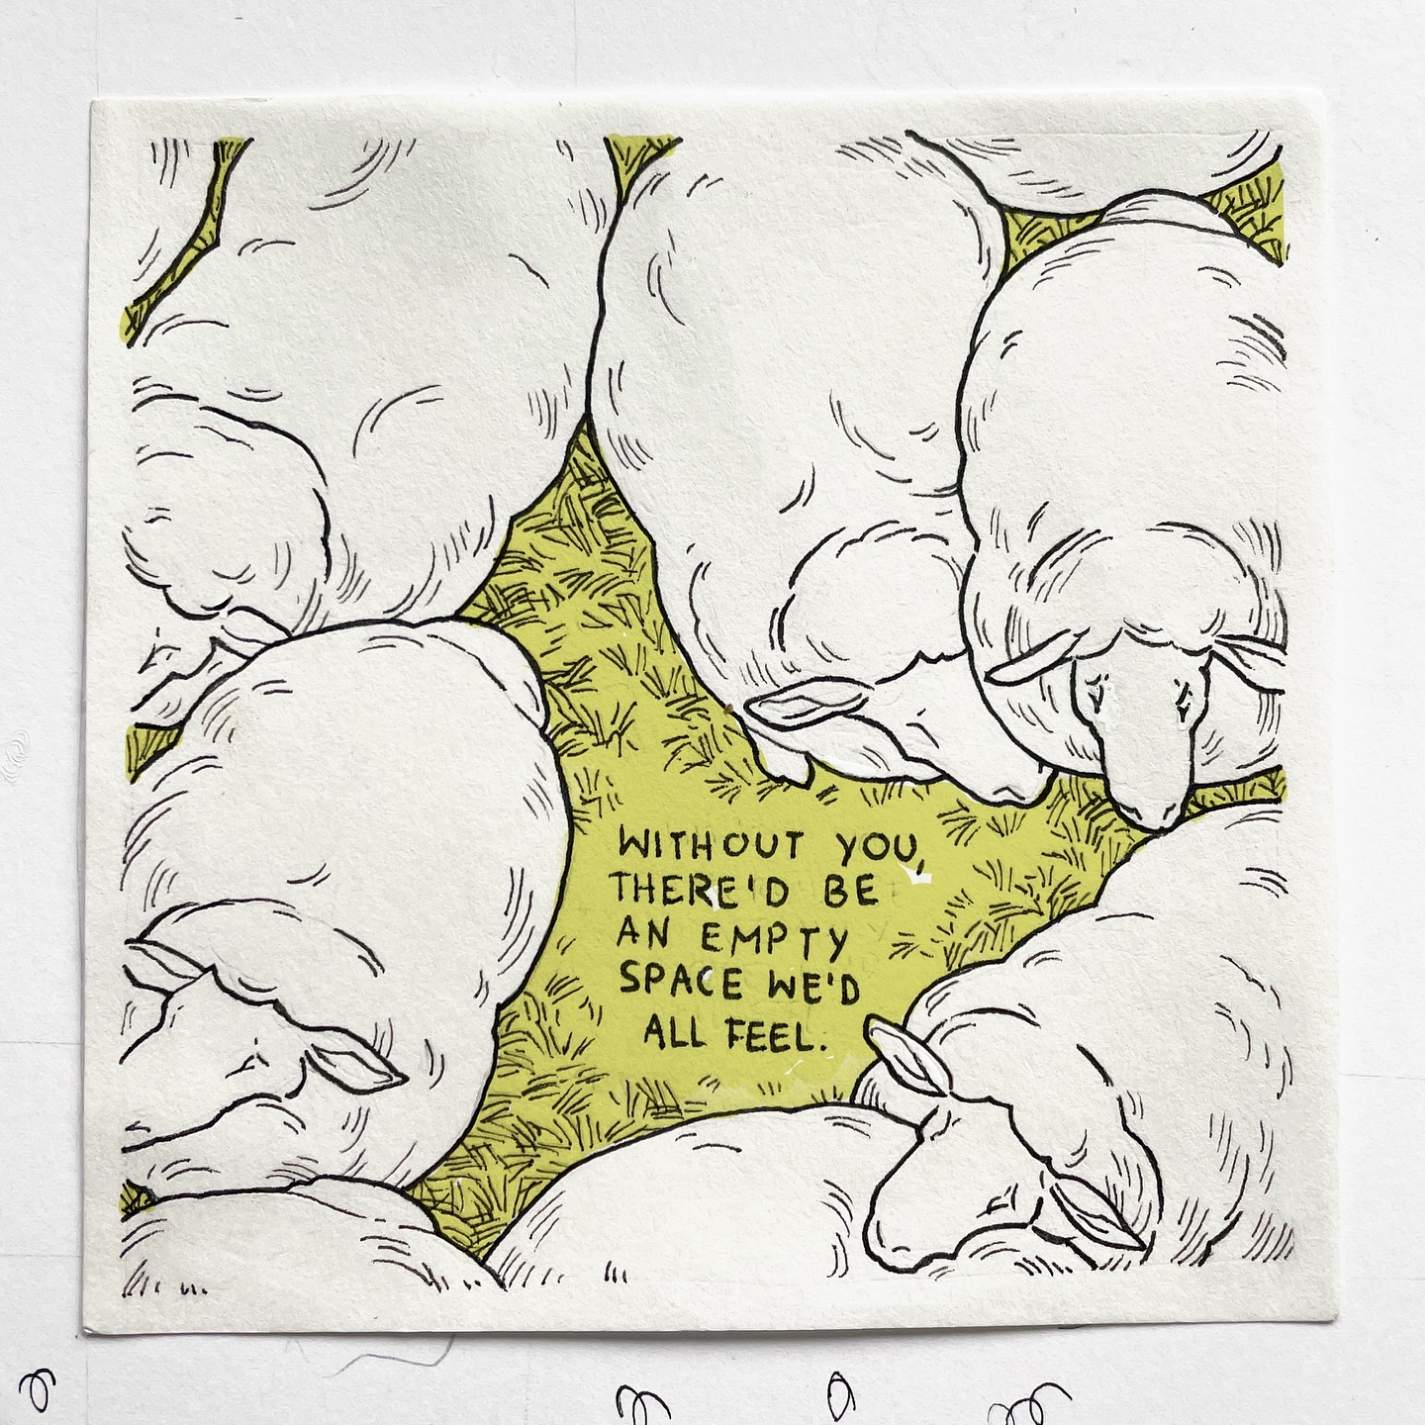 WITHOUT YOU,
THERE'D BE
AN EMPTY
SPACE WE'D
ALL FEEL.